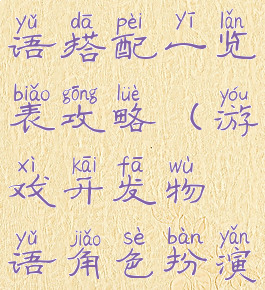 yǔ dā pèi yī lǎn
语搭配一览
biǎo gōng lüè yóu
表攻略（游
xì kāi fā wù
戏开发物
yǔ jiǎo sè bàn yǎn
语角色扮演